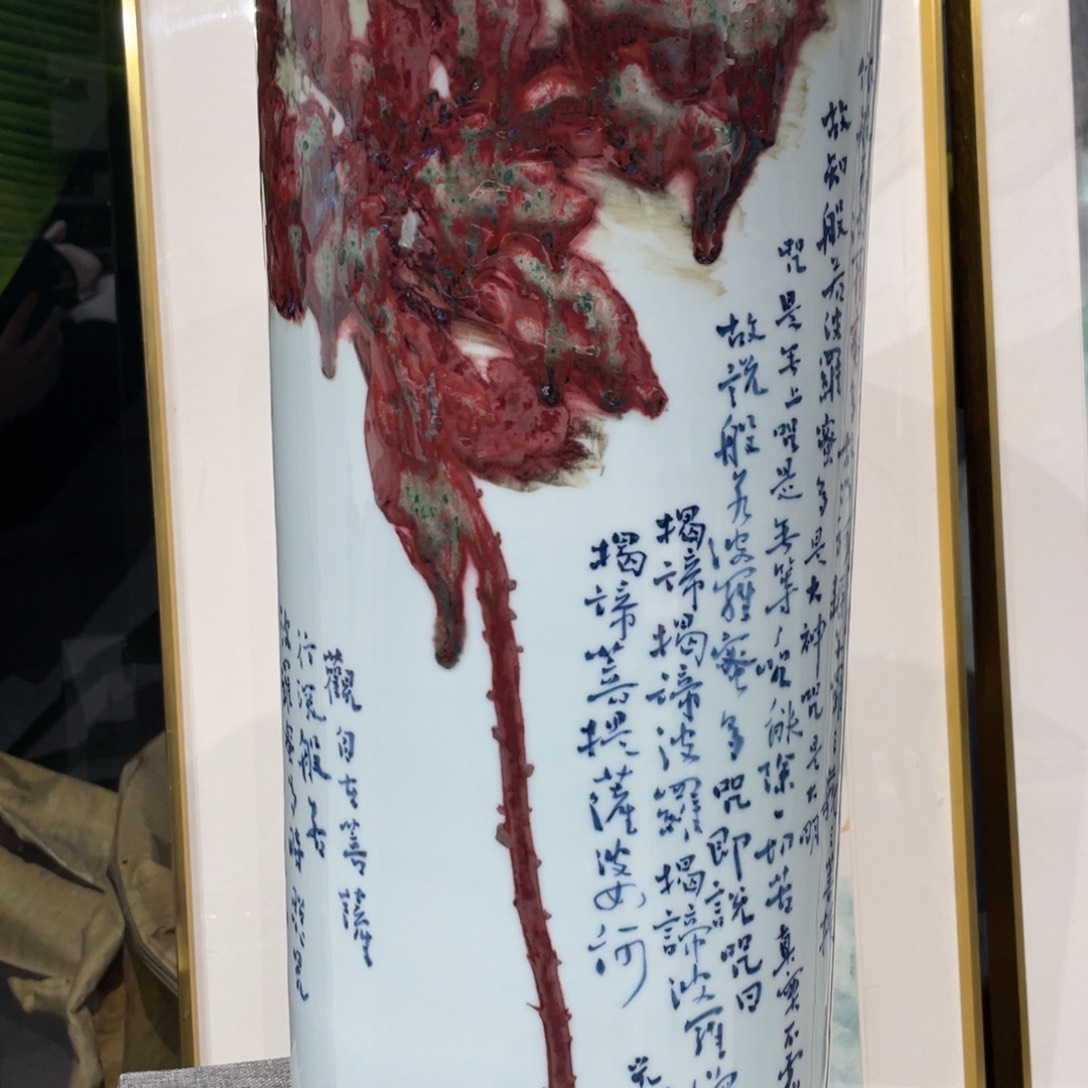 故知般若波羅蜜多是大神咒是大明
咒是無上咒是無等々咒能除一切苦真實不
故說般若波羅蜜多咒即說咒曰
揭諦揭諦波羅揭諦波羅僧
揭諦菩提薩婆訶
觀自在菩薩
行深般若
波羅蜜多時照見